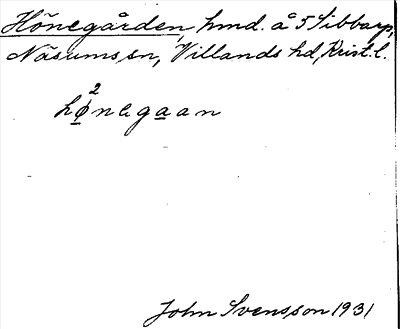 Hönegården, hmd. å 5 Sibbarp,
Näsums sn, Villands hd, Krist. l.
2
hønegaan
John Svensson 1931